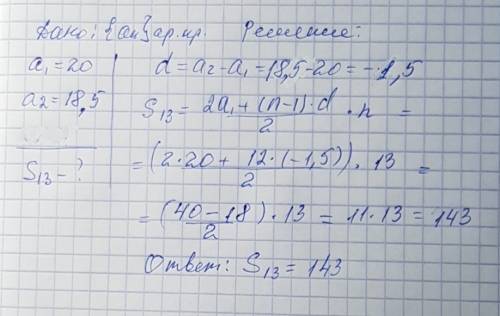 Дано: {an} ар.пр. Решение:
a₁ = 20 d = a₂ - a₁ = 18,5 - 20 = -1,5
a₂ = 18,5 S₁₃ = (2a₁ + (n-1)·d)/2 · n =
S₁₃ - ? = (2·20 + 12·(-1,5))/2 · 13 =
= (40 - 18)/2 · 13 = 11·13 = 143
Ответ: S₁₃ = 143